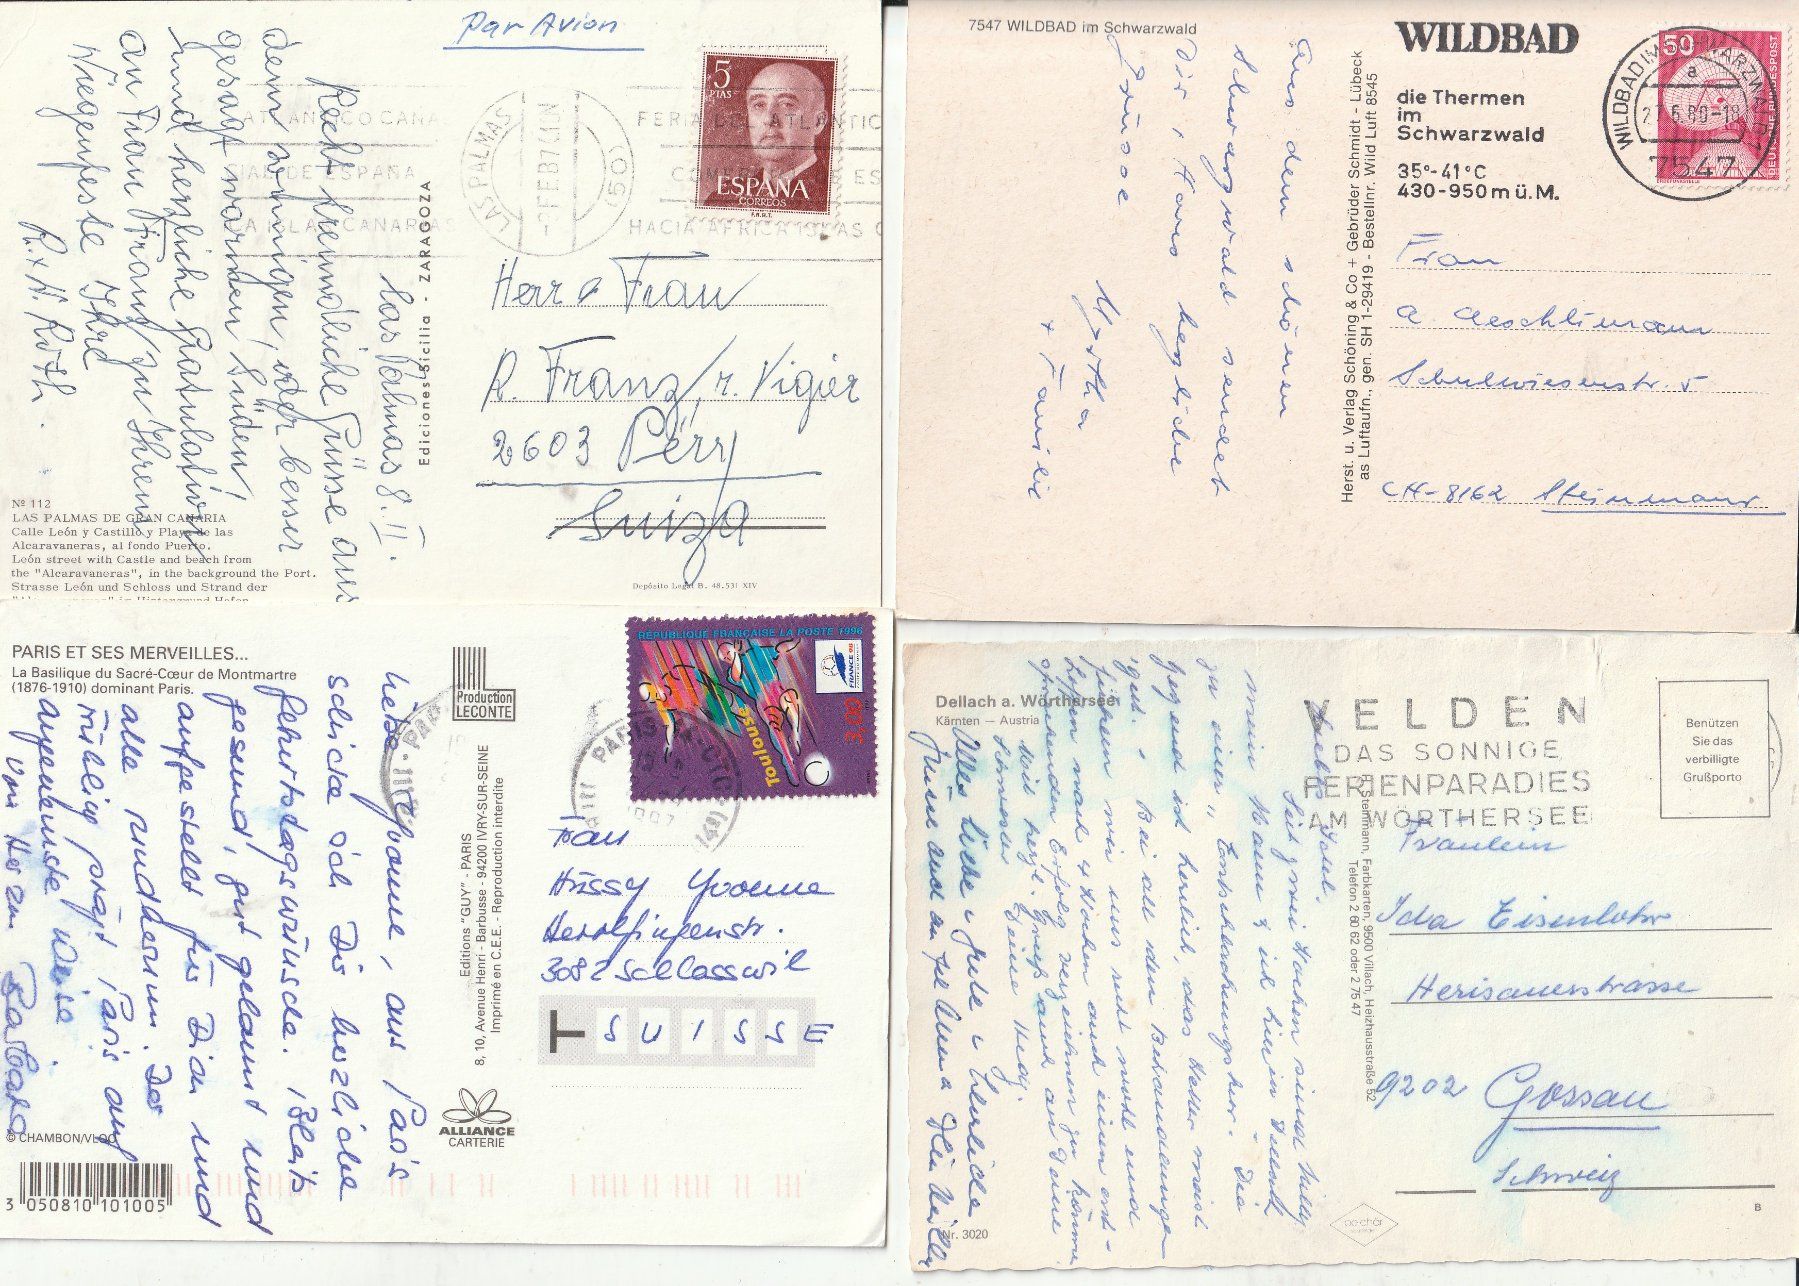 Par Avion
5
PTAS
ESPAÑA
CORREOS
F.N.M.T.
LAS PALMAS
FERIA DEL ATLANTICO
HACIA AFRICA
ATLANTICO CANA
DE ESPAÑA
ISLAS CANARIAS
Las Palmas 8. II.
Recht freundliche Grüsse aus
dem sonnigen, oder besser
gesagt warmen Süden!
und herzliche Gratulation
an Frau Franz zu Ihrem
Wiegenfeste Ihre
R. + H. Roth.
Herr & Frau
R. Franz, r. Vigier
2603 Péry
Suiza
Ediciones Sicilia - ZARAGOZA
Nº 112
LAS PALMAS DE GRAN CANARIA
Calle León y Castillo y Playa de las
Alcaravaneras, al fondo Puerto.
León street with Castle and beach from
the "Alcaravaneras", in the background the Port.
Strasse León und Schloss und Strand der
Depósito Legal B. 48.531 XIV
7547 WILDBAD im Schwarzwald
WILDBAD
die Thermen
im
Schwarzwald
35°-41°C
430-950 m ü.M.
50
DEUTSCHE BUNDESPOST
ERDEFUNKSTELLE
WILDBAD IM SCHWARZWALD 1
a
27.6.80-18
7547
Aus dem schönen
Schwarzwald sendet
Dir, Hans herzliche
Grüsse
Hertha
+ Familie
Herst. u. Verlag Schöning & Co + Gebrüder Schmidt - Lübeck
as Luftaufn., gen. SH 1-29419 - Bestellnr. Wild Luft 8545
Frau
A. Aeschlimann
Schulwiesenstr. 5
CH-8162 Steinmaur
PARIS ET SES MERVEILLES...
La Basilique du Sacré-Cœur de Montmartre
(1876-1910) dominant Paris.
Production
LECONTE
RÉPUBLIQUE FRANÇAISE LA POSTE 1996
FRANCE 98
3,00
Toulouse
PARIS
Liebe Yvonne, aus Paris
schicke ich Dir herzliche
Geburtstagswünsche. Bleib
gesund, gut gelaunt und
aufgestellt für Dich und
alle rundherum. Der
Frühling prägt Paris auf
angenehmste Weise.
Von Herzen Barbara
Editions "GUY" - PARIS
8, 10, Avenue Henri - Barbusse - 94200 IVRY-SUR-SEINE
Imprimé en C.E.E. - Reproduction interdite
Frau
Hüssy Yvonne
Herolfingenstr.
3082 Schlosswil
SUISSE
ALLIANCE
CARTERIE
© CHAMBON/VLOO
3 050810 101005
Dellach a. Wörthersee
Kärnten — Austria
VELDEN
DAS SONNIGE
FERIENPARADIES
AM WÖRTHERSEE
Benützen
Sie das
verbilligte
Grußporto
Liebe Idel.
Seit zwei Wochen sind Willy
mein Mann & ich hier in Dellach
zu einer "Entschlackungskur". Die
Gegend ist herrlich, das Wetter meist
gut. Bei all den Behandlungen
fühlen wir uns recht müde und
hoffen nach 4 Wochen auch einen ent-
sprechenden Erfolg verzeichnen zu können
Mit herzl. Gruß auch an Deine
Schwester Deine Hedy.
Alles Liebe & Gute & herzliche
Steinmann, Farbkarten, 9500 Villach, Heizhausstraße 52
Telefon 2 60 62 oder 2 75 47
Fräulein
Ida Eisenlohr
Herisauerstrasse
9202 Gossau
Schweiz
Nr. 3020
B